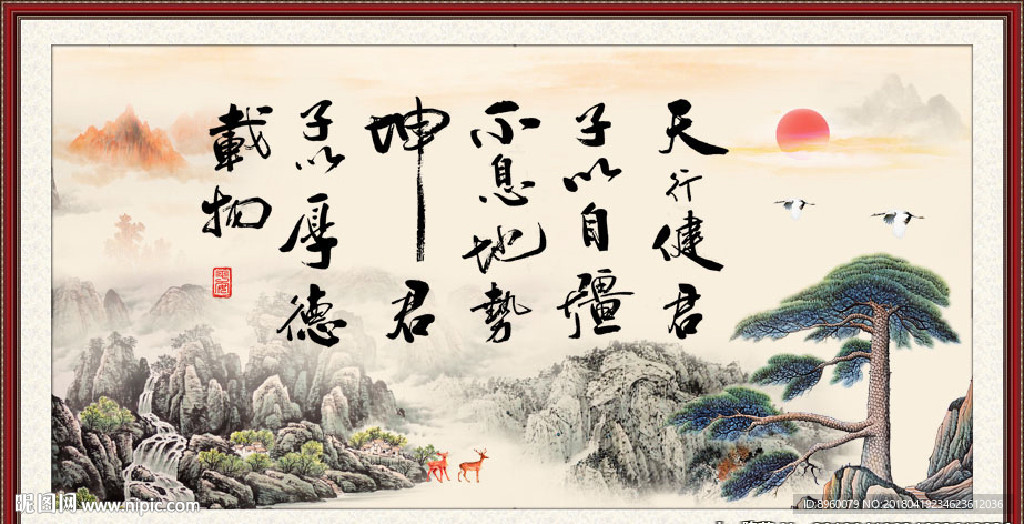 天行健君
子以自彊
不息地勢
坤君
子以厚德
載物
昵图网 www.nipic.com
ID:8960079 NO:20180419234623612036